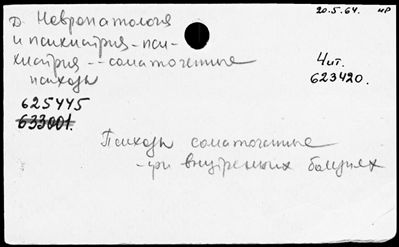 20.5.64. нр
д. Невропатология
и психиатрия - пси-
хиатрия -- соматогенные
психозы
4 ит.
623420.
625445
633001.
Психозы соматогенные
- при внутренних болезнях